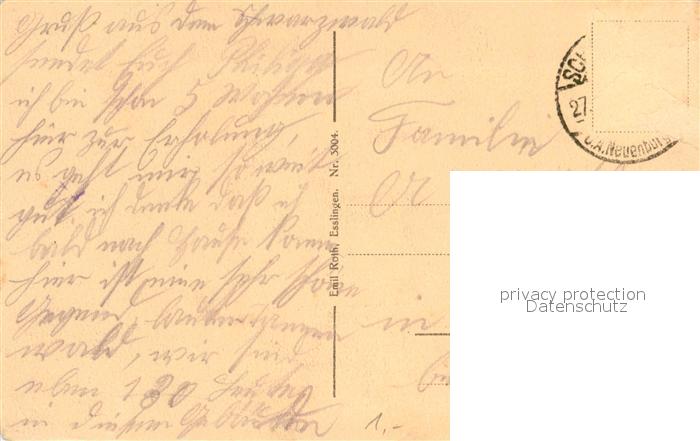 Gruß aus dem Schwarzwald
sendet Euch
ich bin schon 5 Wochen
hier zur Erholung,
es geht mir soweit
gut. ich denke daß ich
bald nach Hause komme
hier ist eine sehr schöne
Gegend, lauter Tannen
wald, wir sind
über 120 Leute
in diesem
An
Familie
in
Emil Roth, Esslingen. Nr. 3004.
SCH
27
O.A. Neuenbürg
privacy protection
Datenschutz
1,-